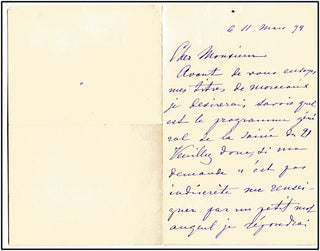 le 11 Mars 94
Cher Monsieur
Avant de vous envoyer
mes titres de morceaux
je desirerais savoir quel
est le programme géné
ral de la soirée du 21
Veuillez donc, si ma
demande n'est pas
indiscrète me rensei-
gner par un petit mot
auquel je répondrai